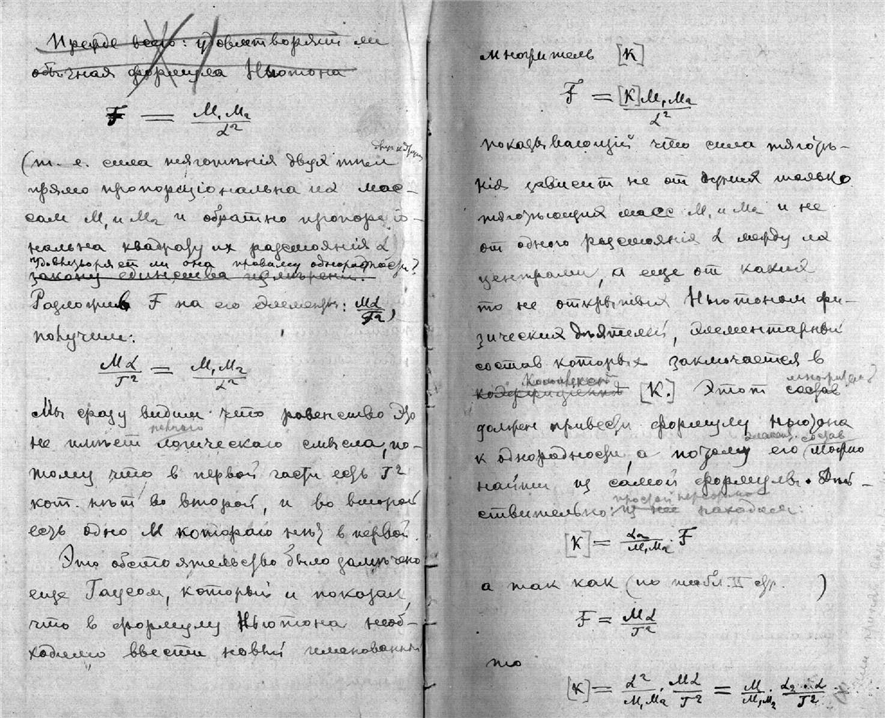 Прежде всего: удовлетворяет ли
обычная формула Ньютона
F = M₁M₂/L²
(т. е. сила тяготѣнія двух тѣл друг к другу
прямо пропорціональна их мас-
сам M₁ и M₂ и обратно пропорціо-
нальна квадрату их разстоянія L
удовлетворяет ли она правилу однородности?
закону единства
Разложив F на его элементы: ML/T²,
получим:
ML/T² = M₁M₂/L²
Мы сразу видим что равенство это
не имѣет логическаго смысла, по-
тому что в первой части есть T²
кот. нѣт во второй, и во второй
есть одно M котораго нѣт в первой.
Это обстоятельство было замѣчено
еще Гаусом, который и показал,
что в формулу Ньютона необ-
ходимо ввести новый именованный
множитель [K]
F = [K]M₁M₂/L²
показывающий что сила тяготѣ-
нія зависит не от одних только
тяготѣющих масс M₁ и M₂ и не
от одного разстоянія L между их
центрами, а еще от каких
то не открытых Ньютоном фи-
зических дѣятелей, элементарный
состав которых заключается в
[K.] Этот множитель
должен привести формулу Ньютона
к однородности, а потому его можно
найти из самой формулы. Дѣй-
ствительно: из нее находим:
[K] = L²/M₁M₂ · F
а так как (по табл. II стр. )
F = ML/T²
то
[K] = L²/M₁M₂ · ML/T² = M/M₁M₂ · L² · L/T²